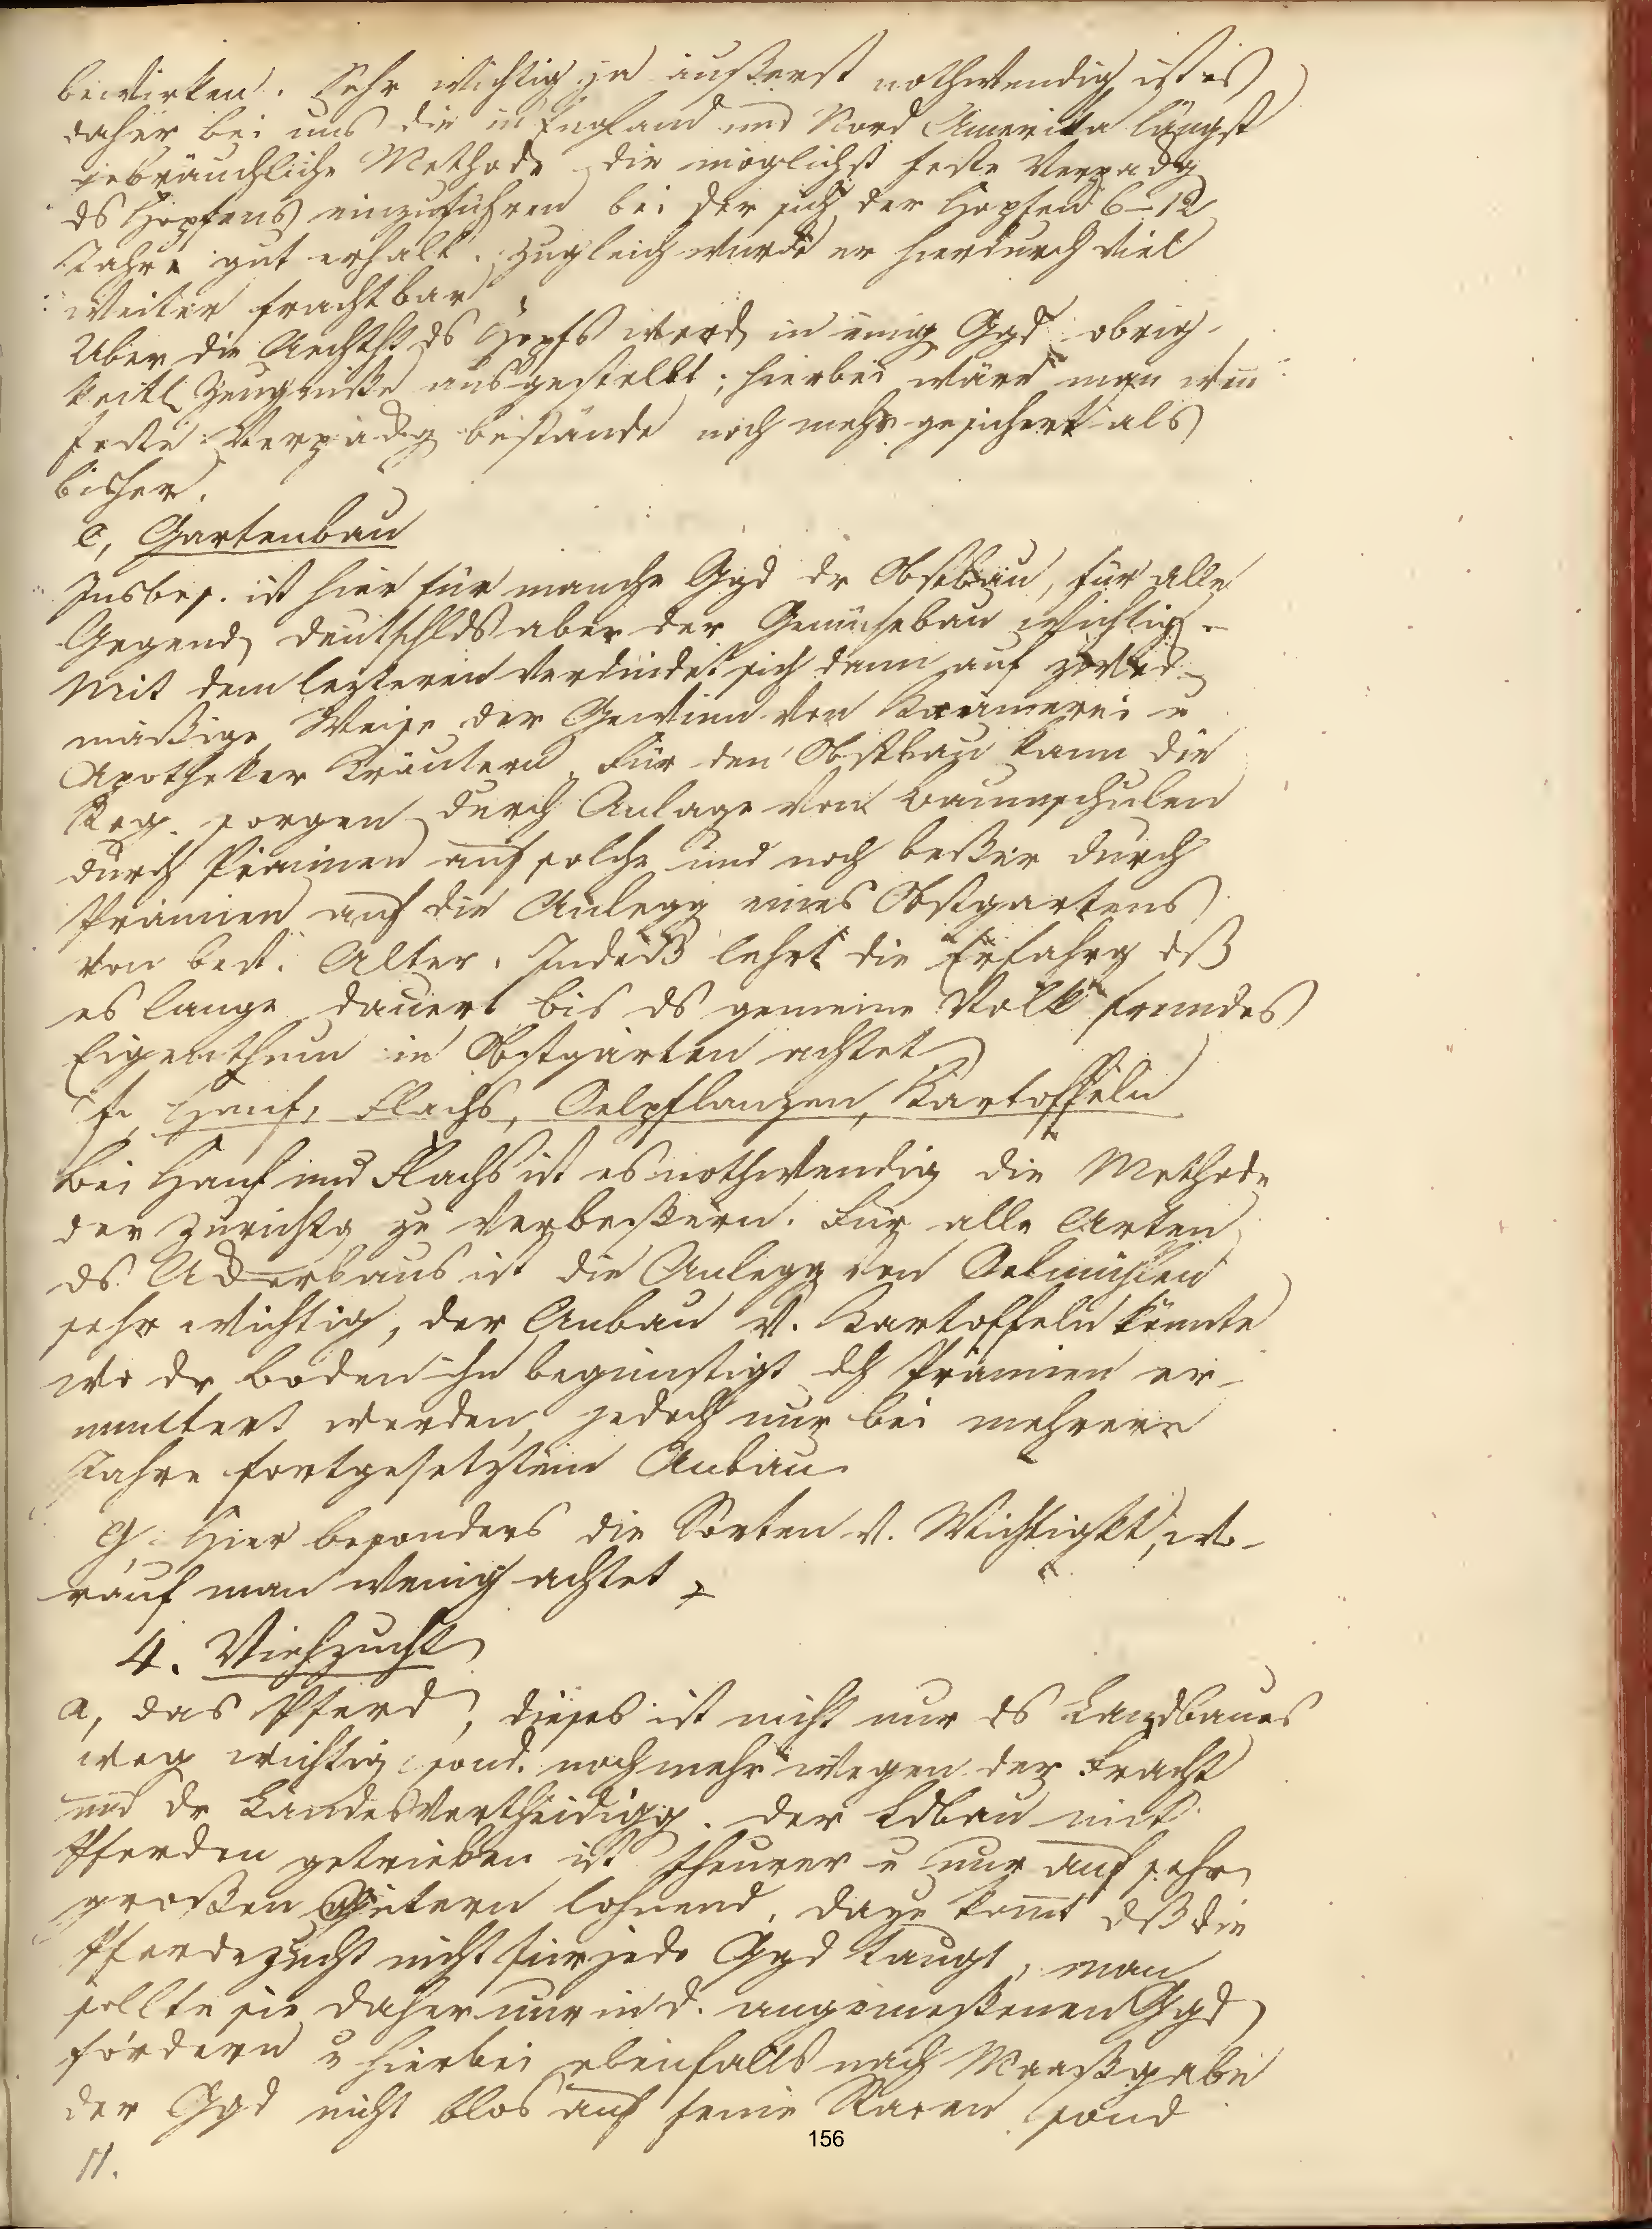 bewirken. Sehr wichtig ja äußerst nothwendig ist es
daher bei uns die in England und Nord Amerika längst
gebräuchliche Methode die möglichst feste Verpackg
ds Hopfens einzuführen bei der sich der Hopfen 6-12
Jahre gut erhält. Zugleich wurde er hierdurch viel
weiter frachtbar.
Über die Aechtht ds Hopfs werd in einig Ggd obrig-
keitl Zeugnisse ausgestellt; hierbei wäre man wenn
feste Verpackg bestände noch mehr gesichert als
bisher.
e, Gartenbau
Insbes. ist hier für manche Ggd dr Obstbau, für alle
Gegend deutschlds aber der Gemüsebau wichtig.
Mit dem lezteren verbindet sich dann auf zweck-
mäßige Weise der Gewinn von Krämerei u
Apotheker Kräutern. Für den Obstbau kann die
Reg. sorgen durch Anlage von Baumschulen
durch Prämien auf solche und noch beßer durch
Prämien auf die Anlegg eines Obstgartens
von best. Alter. Indeß lehrt die Erfahrg dß
es lange dauert bis ds gemeine Volk fremdes
Eigenthum in Obstgärten achtet
f, Hanf, Flachs, Oelpflanzen, Kartoffeln
Bei Hanf und Flachs ist es nothwendig die Methode
der Zurichtg zu verbeßern. Für alle Arten
ds Ackerbaus ist die Anlegg von Oelmühlen
sehr wichtig, der Anbau v. Kartoffeln könnte
wo dr Boden ihn begünstigt dch Prämien er-
muntert werden, jedoch nur bei mehrere
Jahre fortgesetztem Anbau.
g, Hier besonders die Sorten v. Wichtigkt, wo-
rauf man wenig achtet
4. Viehzucht
a, das Pferd, dieses ist nicht nur ds Landbaues
weg wichtig sond. noch mehr wegen der Fracht
und dr Landesvertheidigg. der Ldbau mit
Pferden getrieben ist theurer u nur auf sehr
großen Gütern lohnend, dazu kommt dß die
Pferdezucht nicht für jede Ggd taugt, man
sollte sie daher nur in d. angemeßenen Ggd
fördern u hierbei ebenfalls nach Maaßgabe
der Ggd nicht blos auf feine Racen sond
11.
156